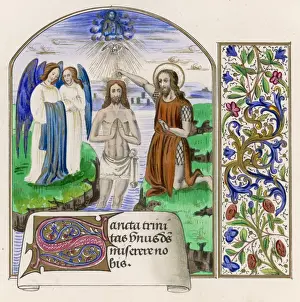 Sancta trini
tas vnus ds
miserere no
bis.